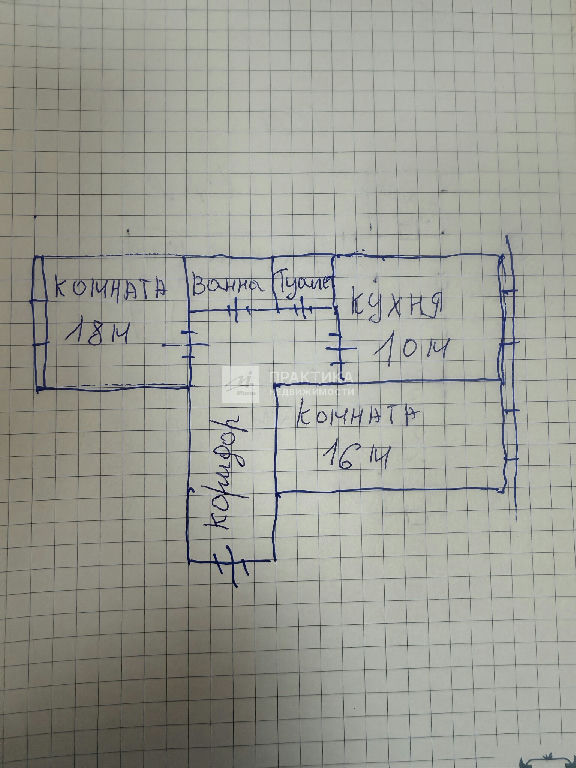 комната
18м
Ванна
Туале
кухня
10м
комната
16м
коридор
ПРАКТИКА
НЕДВИЖИМОСТИ